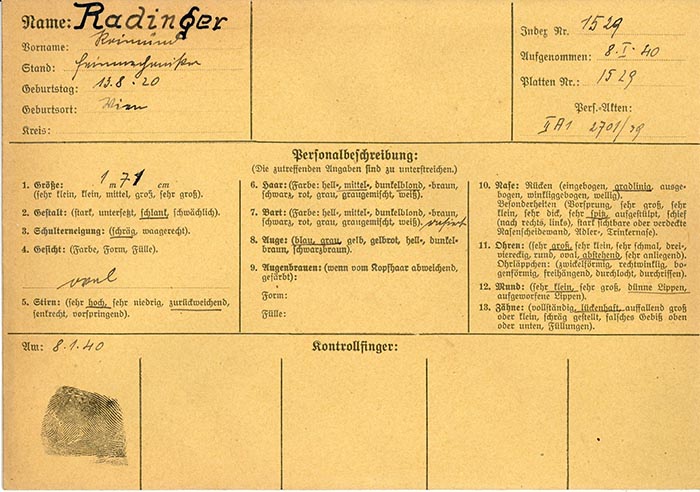 Name: Radinger
Vorname: Reimund
Stand: Feinmechaniker
Geburtstag: 13.8.20
Geburtsort: Wien
Kreis:
Index Nr. 1529
Aufgenommen: 8.I.40
Platten Nr.: 1529
Pers.-Akten:
II A1 2701/39
Personalbeschreibung:
(Die zutreffenden Angaben sind zu unterstreichen.)
1. Größe: 1 m 71 cm
(sehr klein, klein, mittel, groß, sehr groß).
2. Gestalt: (stark, untersetzt, schlank, schwächlich).
3. Schulterneigung: (schräg, waagerecht).
4. Gesicht: (Farbe, Form, Fülle).
oval
5. Stirn: (sehr hoch, sehr niedrig, zurückweichend,
senkrecht, vorspringend).
6. Haar: (Farbe: hell-, mittel-, dunkelblond, -braun,
schwarz, rot, grau, graugemischt, weiß).
7. Bart: (Farbe: hell-, mittel-, dunkelblond, -braun,
schwarz, rot, grau, graugemischt, weiß). rasiert
8. Auge: (blau, grau, gelb, gelbrot, hell-, dunkel-
braun, schwarzbraun).
9. Augenbrauen: (wenn vom Kopfhaar abweichend,
gefärbt):
Form:
Fülle:
10. Nase: Rücken (eingebogen, gradlinig, ausge-
bogen, winkliggebogen, wellig).
Besonderheiten (Vorsprung, sehr groß, sehr
klein, sehr dick, sehr spitz, aufgestülpt, schief
(nach rechts, links), stark sichtbare oder verdeckte
Nasenscheidewand, Adler-, Trinkernase).
11. Ohren: (sehr groß, sehr klein, sehr schmal, drei-,
viereckig, rund, oval, abstehend, sehr anliegend).
Ohrläppchen: (zwickelförmig, rechtwinklig, bo-
genförmig, freihängend, durchlocht, durchriffen).
12. Mund: (sehr klein, sehr groß, dünne Lippen,
aufgeworfene Lippen).
13. Zähne: (vollständig, lückenhaft, auffallend groß
oder klein, schräg gestellt, falsches Gebiß oben
oder unten, Füllungen).
Am: 8.1.40
Kontrollfinger: